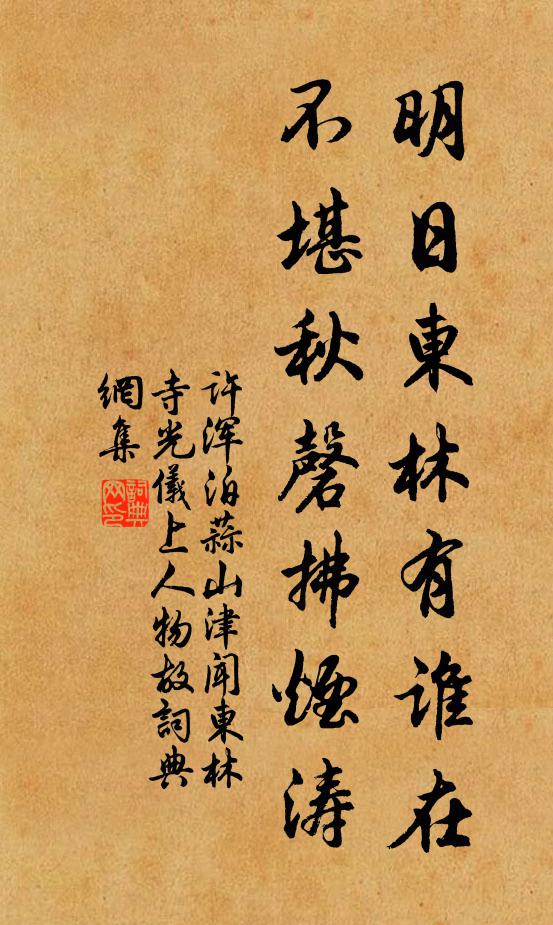 明日東林有誰在
不堪秋磬拂煙涛
许浑泊蒜山津聞東林
寺光儀上人物故詞典
網集
詞典
网印